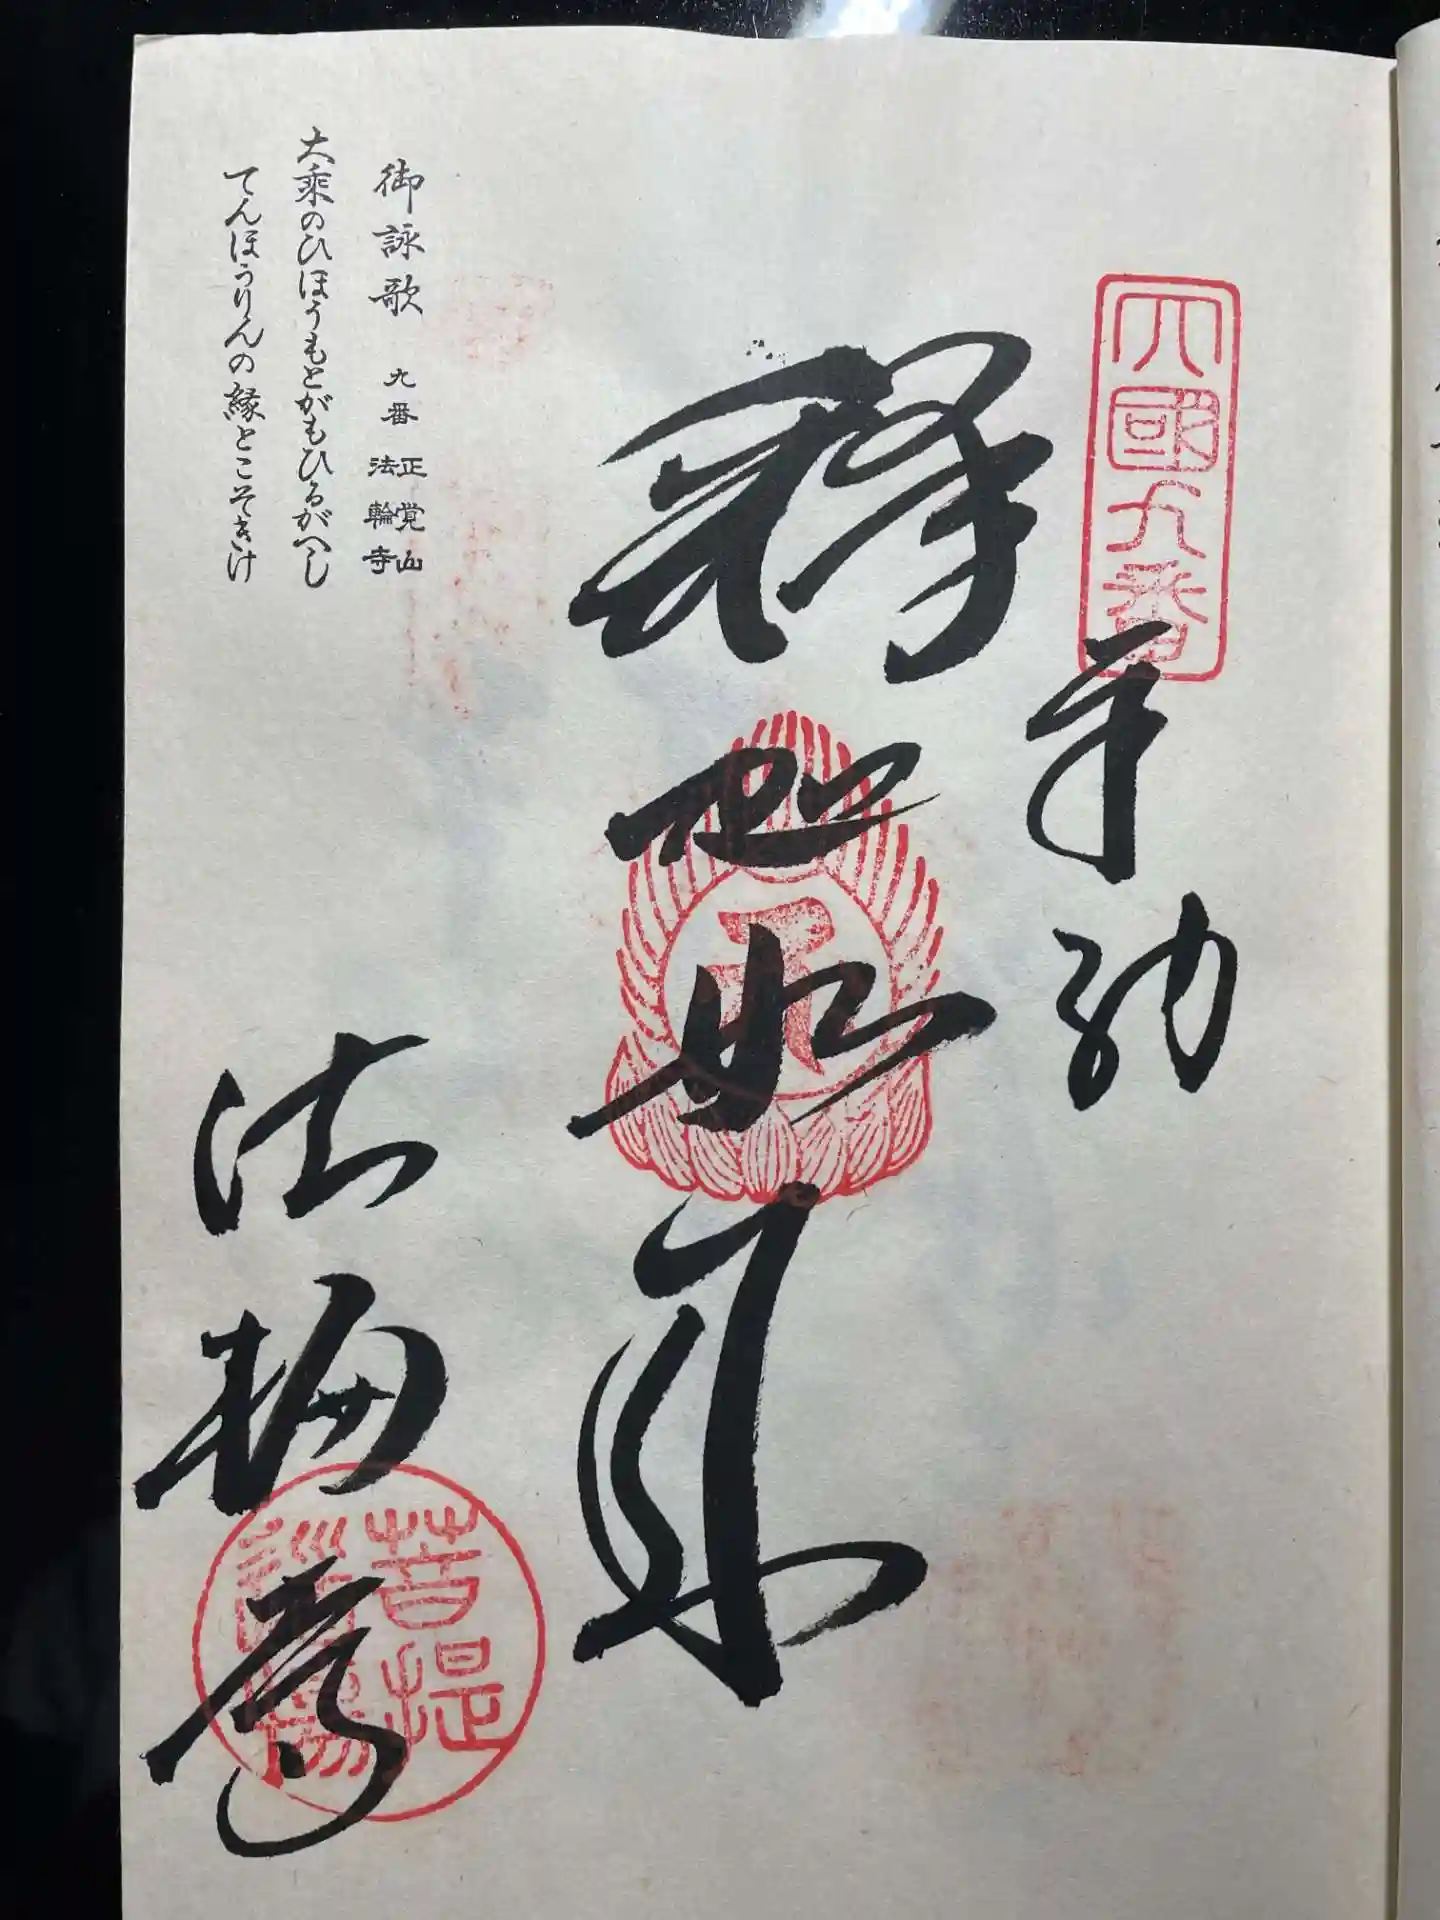 四國九番
奉納
釋迦如来
御詠歌 九番 正覚山
法輪寺
大乗のひほうもとがもひるがへし
てんほうりんの縁とこそきけ
法輪寺
菩提